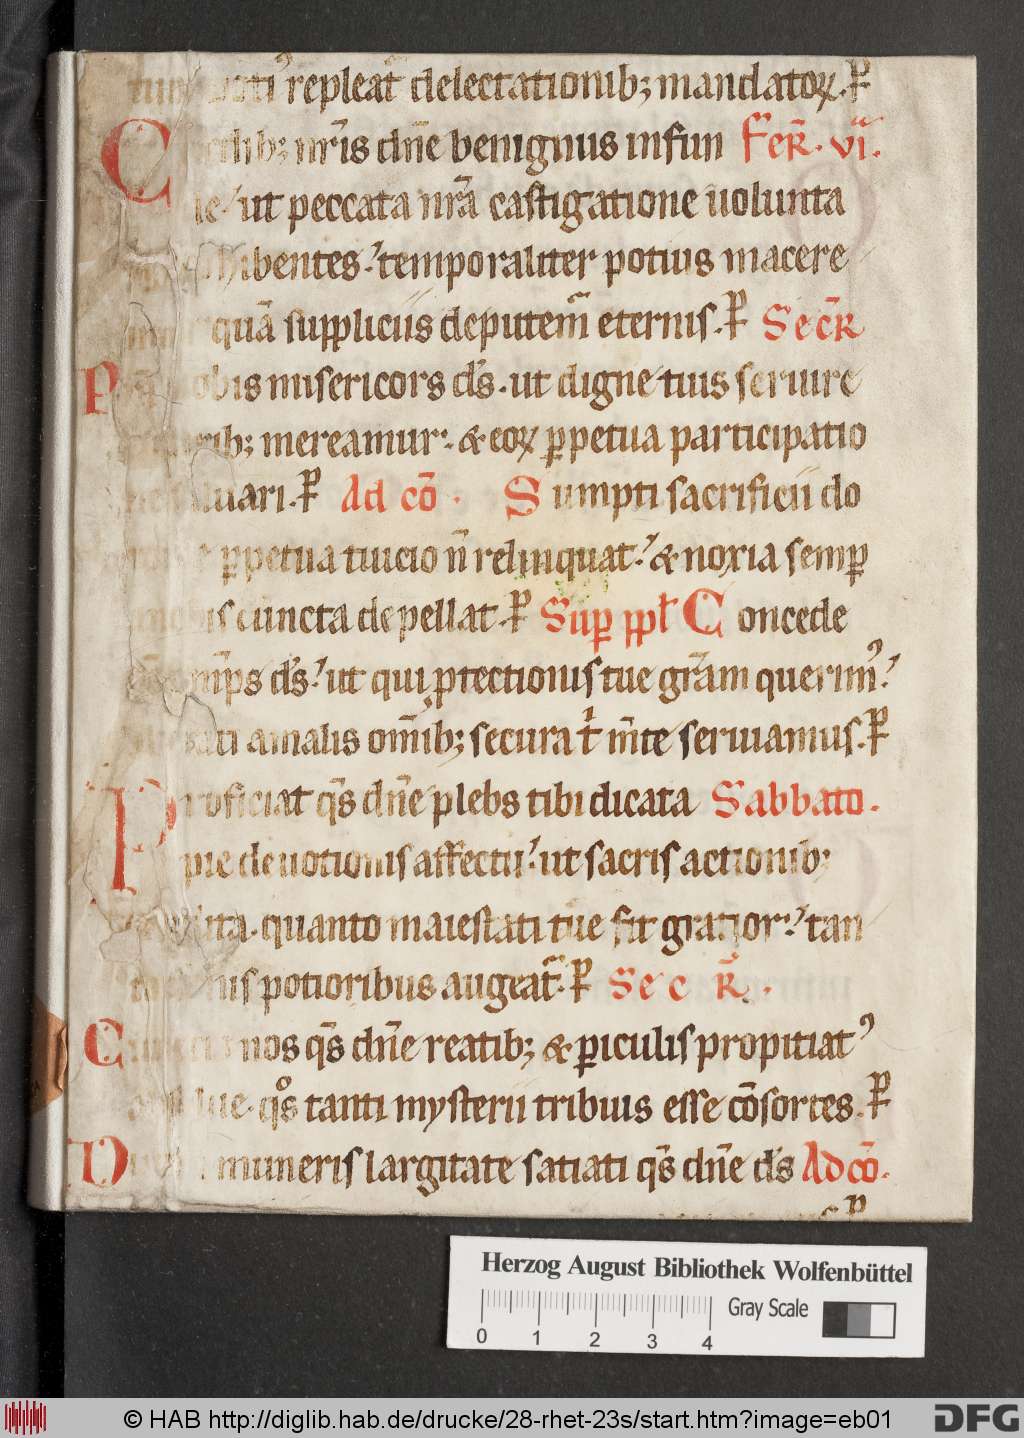 repleat̄ delectationib; mandatoꝝ. P̄
C ib; nr̄is dn̄e benignus infun Fer̄. vi.
ut peccata nr̄a castigatione uolunta
hibentes. temporaliter potius macere
quā suppliciis deputem̄ eternis. P̄ Secr̄
P obis misericors ds̄. ut digne tuis seruire
rib; mereamur. & eoꝝ ꝑpetua participatio
uari. P̄ Ad cō. Sumpti sacrificii do
ꝑpetua tuicio n̄ relinquat. & noxia semꝑ
cuncta depellat. P̄ Suꝑ ppl̄ Concede
mp̄s ds̄. ut qui ꝓtectionis tue grām querim᾽
ati a malis om̄ib; secura t̄ m̄te seruiamus. P̄
Proficiat qs̄ dn̄e plebs tibi dicata Sabbato.
pie deuotionis affectu. ut sacris actionib;
ita. quanto maiestati tue fit gratior. tan
nis potioribus augeat̄. P̄ Secr̄.
C nos qs̄ dn̄e reatib; & ꝑiculis propitiat᾽
lue. qos tanti mysterii tribuis esse cōsortes. P̄
D muneris largitate satiati qs̄ dn̄e ds̄ Ad cō.
Herzog August Bibliothek Wolfenbüttel
Gray Scale
0 1 2 3 4
© HAB http://diglib.hab.de/drucke/28-rhet-23s/start.htm?image=eb01 DFG